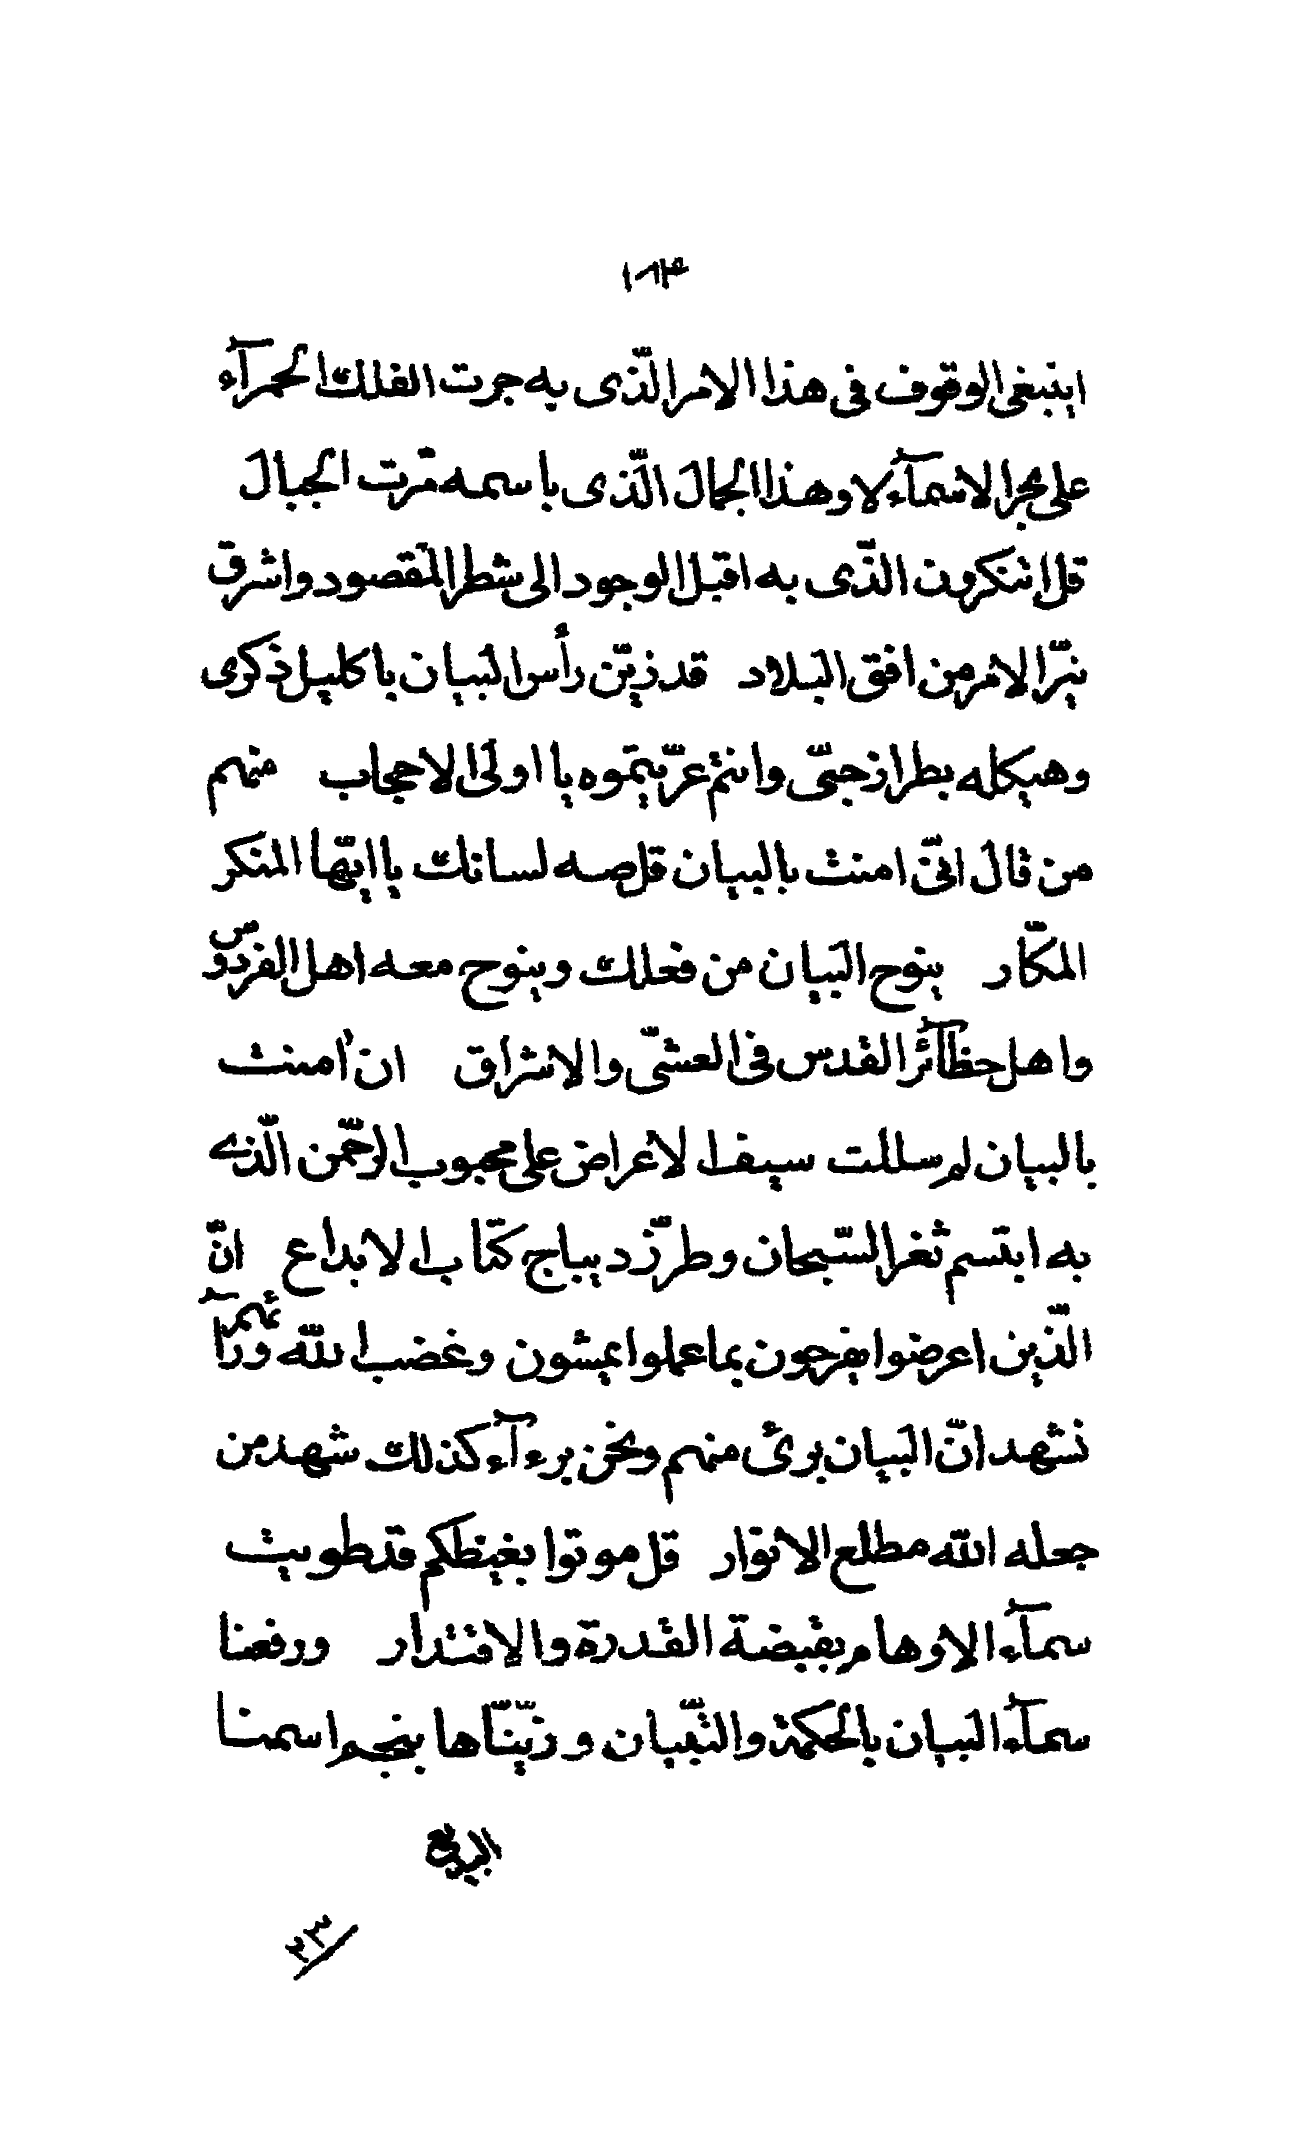 ١٨۴
اينبغى الوقوف فى هذا الامر الّذى به جرت الفلك الحمرآء
على بحر الاسمآء لا و هذا الجمال الّذى باسمه مرّت الجبال
قل اتنكرون الّذى به اقبل الوجود الى شطر المقصود و اشرق
نيّر الامر من افق البلاد قد زيّن رأس البيان باكليل ذكرى
و هيكله بطراز حبّى و انتم عرّيتموه يا اولى الاحجاب منهم
من قال انّى امنت بالبيان قل صه لسانك يا ايّها المنكر
المكّار ينوح البيان من فعلك و ينوح معه اهل الفردوس
و اهل حظآئر القدس فى العشىّ و الاشراق ان اٰمنت
بالبيان لم سللت سيف الاعراض على محبوب الرّحمن الّذى
به ابتسم ثغر السّبحان و طرّز ديباج كتاب الابداع انّ
الّذين اعرضوا يفرحون بما عملوا يمشون و غضب اللّه ورآئهم
نشهد انّ البيان برئ منهم و نحن برءآء كذلك شهد من
جعله اللّه مطلع الانوار قل موتوا بغيظكم قد طويت
سمآء الاوهام بقبضة القدرة و الاقتدار و رفعنا
سمآء البيان بالحكمة و التّبيان و زيّنّاها بنجم اسمنا
البديع
٢٣